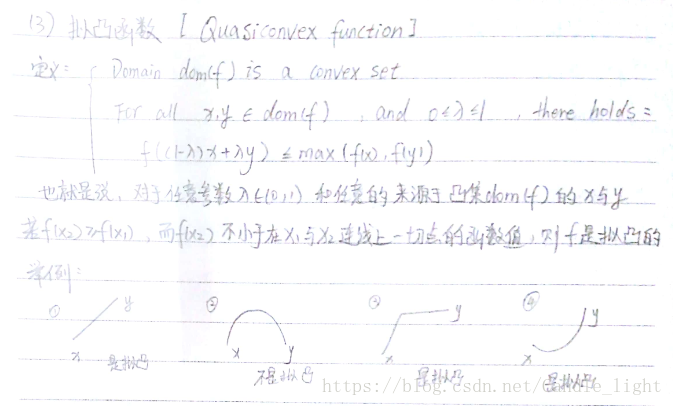 (3) 拟凸函数 [ Quasiconvex function ]
定义: Domain dom(f) is a convex set
For all x,y ∈ dom(f) , and 0≤λ≤1 , there holds:
f((1-λ)x+λy) ≤ max(f(x), f(y))
也就是说, 对于任意参数λ∈(0,1) 和任意的来源于凸集dom(f)的x与y
若f(x₂)≥f(x₁), 而f(x₂)不小于在x₁与x₂连线上一切点的函数值, 则f是拟凸的
举例:
① x y 是拟凸
② x y 不是拟凸
③ x y 是拟凸
④ x y 是拟凸
https://blog.csdn.net/Candle_light